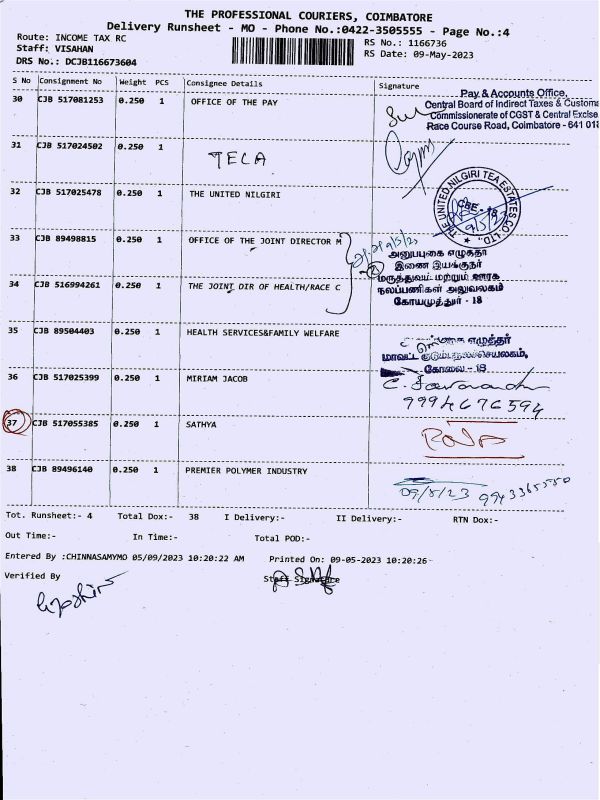 THE PROFESSIONAL COURIERS, COIMBATORE
Delivery Runsheet - MO - Phone No.:0422-3505555 - Page No.:4
Route: INCOME TAX RC
RS No.: 1166736
Staff: VISAHAN
RS Date: 09-May-2023
DRS No.: DCJB116673604
S No Consignment No Weight PCS Consignee Details Signature
30 CJB 517081253 0.250 1 OFFICE OF THE PAY
Pay & Accounts Office,
Central Board of Indirect Taxes & Customs
Commissionerate of CGST & Central Excise
Race Course Road, Coimbatore - 641 018
31 CJB 517024502 0.250 1 TECA
32 CJB 517025478 0.250 1 THE UNITED NILGIRI
THE UNITED NILGIRI TEA ESTATES CO. LTD.
CBE - 18
9/5/23
33 CJB 89498815 0.250 1 OFFICE OF THE JOINT DIRECTOR M
9/5/23
அனுபபுகை எழுகதா
இணை இயக்குநர்
மருத்துவம் மற்றும் ஊரக
நலப்பணிகள் அலுவலகம்
கோயமுத்தூர் - 18
34 CJB 516994261 0.250 1 THE JOINT DIR OF HEALTH/RACE C
35 CJB 89504403 0.250 1 HEALTH SERVICES&FAMILY WELFARE
எழுத்தர்
மாவட்ட
கோவை - 18
36 CJB 517025399 0.250 1 MIRIAM JACOB
9994676594
37 CJB 517055385 0.250 1 SATHYA
38 CJB 89496140 0.250 1 PREMIER POLYMER INDUSTRY
09/5/23 9943365550
Tot. Runsheet:- 4 Total Dox:- 38 I Delivery:- II Delivery:- RTN Dox:-
Out Time:- In Time:- Total POD:-
Entered By :CHINNASAMYMO 05/09/2023 10:20:22 AM Printed On: 09-05-2023 10:20:26
Verified By Staff Signature